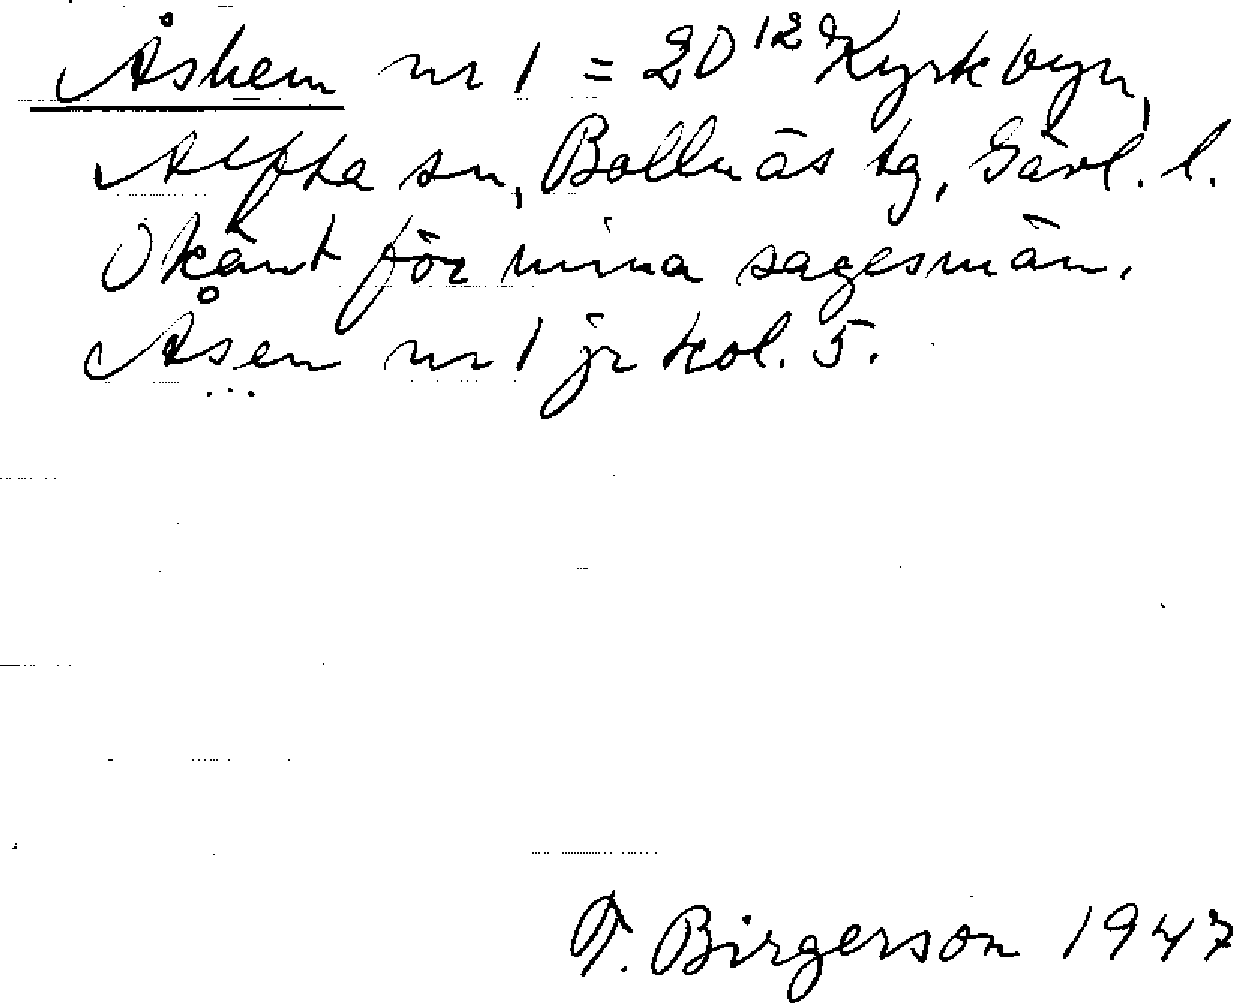 Åshem nr 1 = 20¹² Kyrkbyn,
Alfta sn, Bollnäs tg, Gävl. l.
Okänt för mina sagesmän.
Åsen nr 1 jr kol. 5.
T. Birgerson 1947